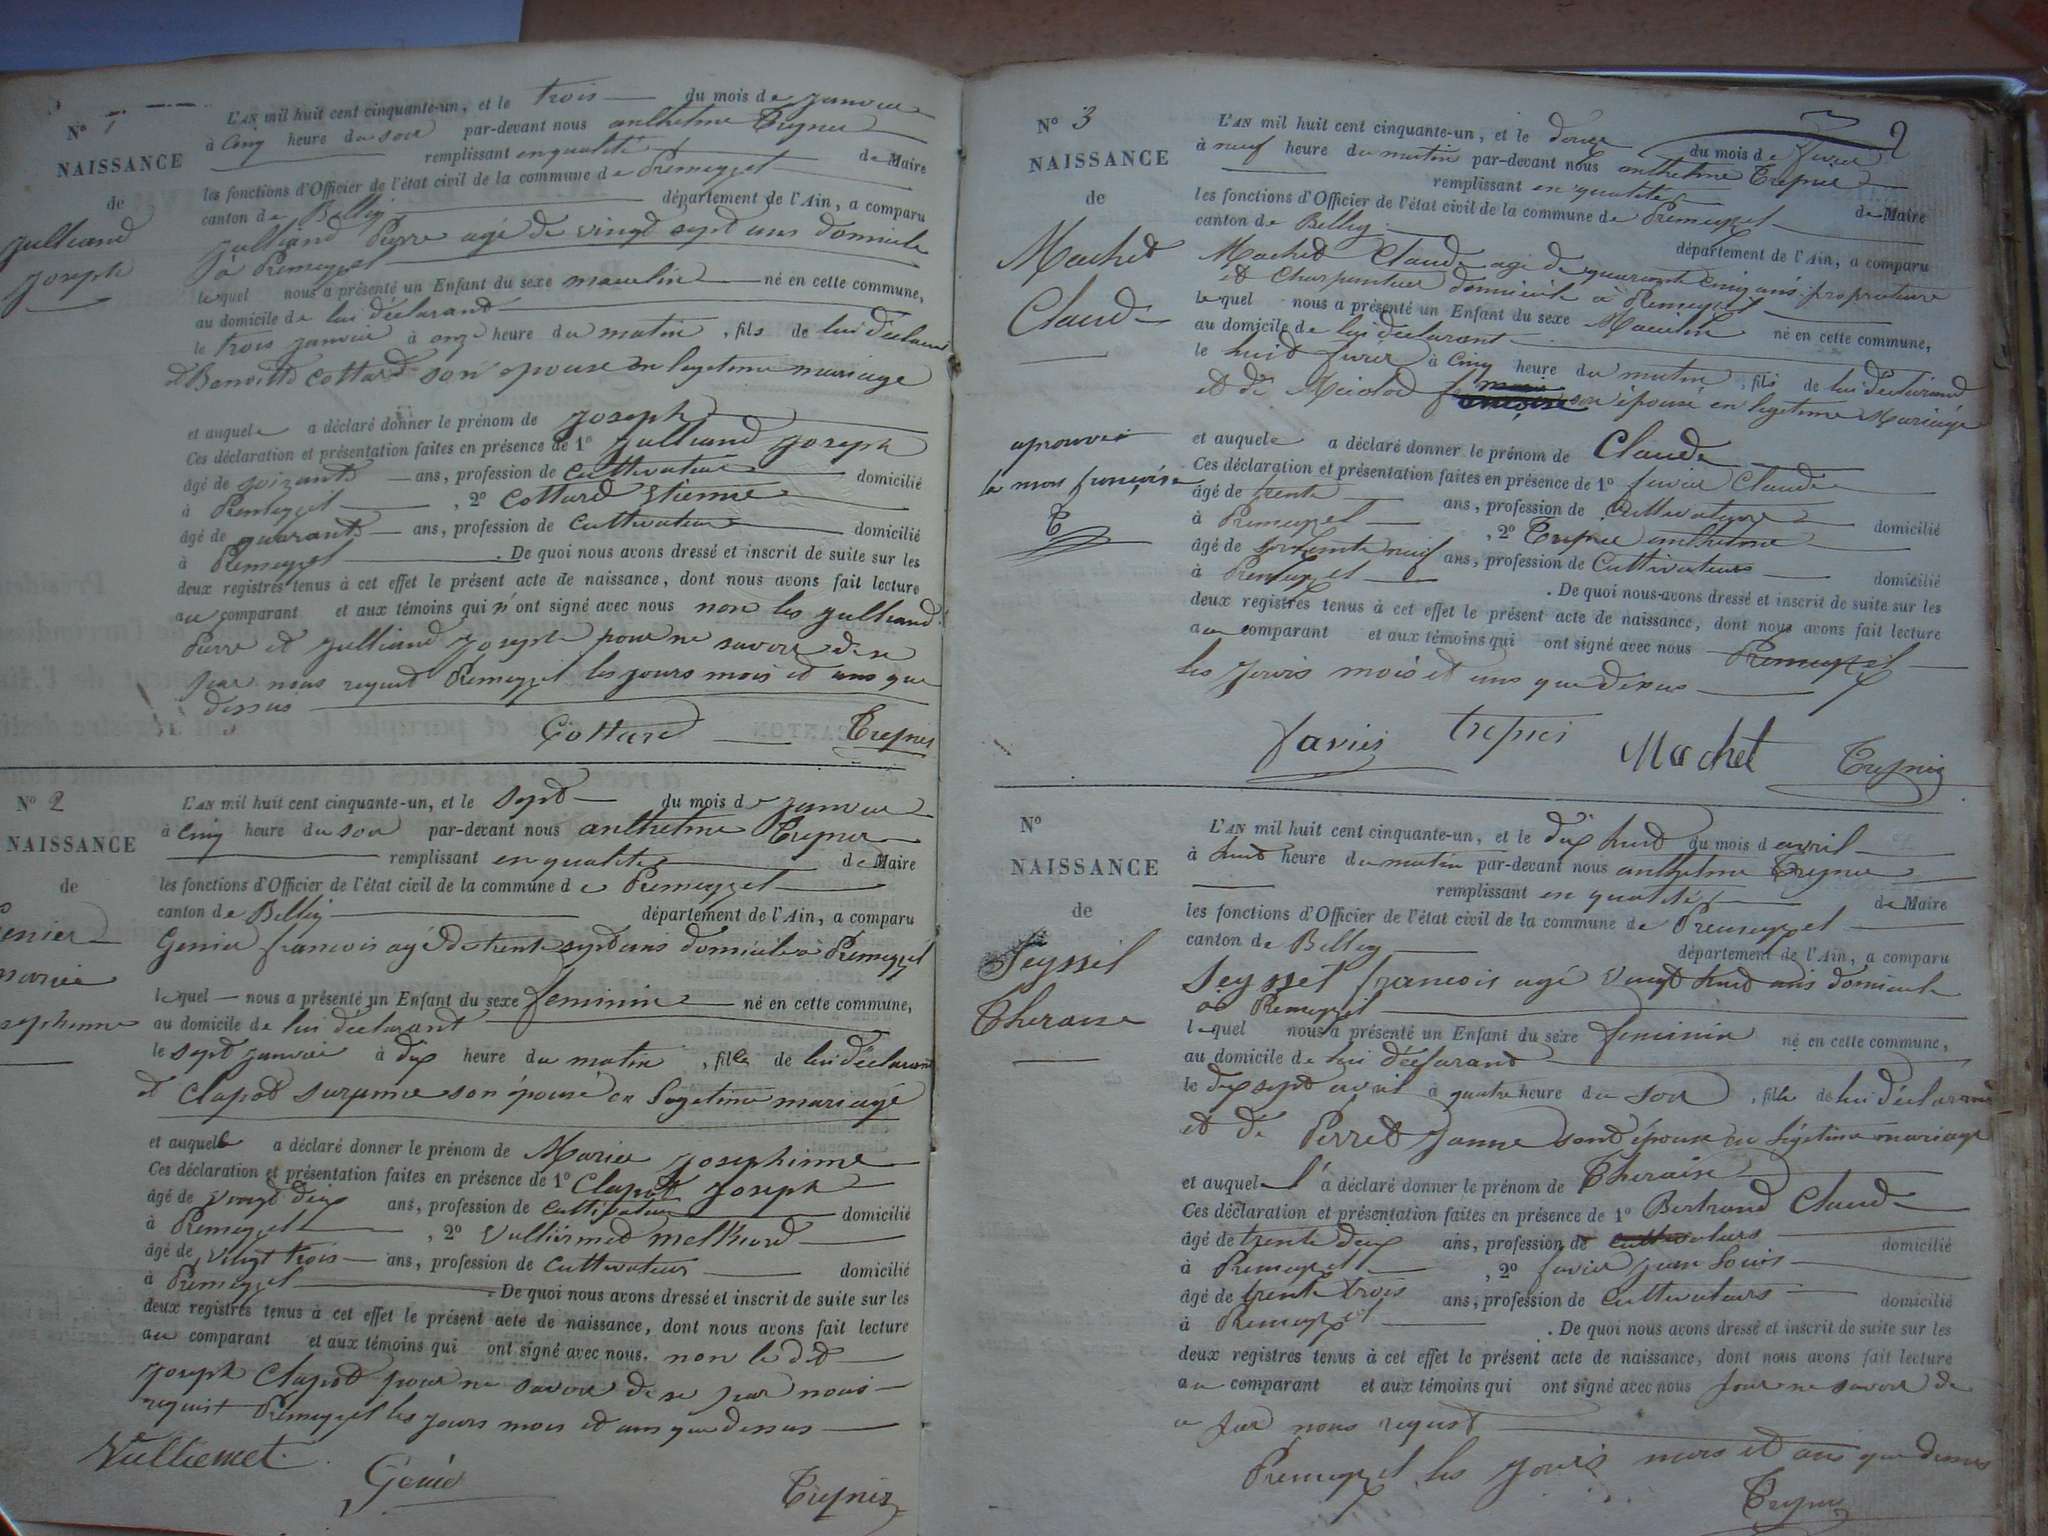 N° 1
NAISSANCE
de
Julliand
Joseph
L'AN mil huit cent cinquante-un, et le trois du mois de janvier
à Cinq heure du soir par-devant nous anthelme Trepier
remplissant en qualité de Maire
les fonctions d'Officier de l'état civil de la commune de Premeyzel
canton de Belley département de l'Ain, a comparu
Julliand Pierre agé de vingt sept ans domicile
à Premeyzel
lequel nous a présenté un Enfant du sexe masculin né en cette commune,
au domicile de lui déclarant
le trois janvier à onze heure du matin, fils de lui déclarant
et Cottard son epouse en legetime mariage
et auquele a déclaré donner le prénom de Joseph
Ces déclaration et présentation faites en présence de 1° Julliand Joseph
âgé de soixante ans, profession de Cultivateur domicilié
à Premeyzel, 2° Cottard Etienne
âgé de quarante ans, profession de Cultivateur domicilié
à Premeyzel. De quoi nous avons dressé et inscrit de suite sur les
deux registres tenus à cet effet le présent acte de naissance, dont nous avons fait lecture
au comparant et aux témoins qui n'ont signé avec nous non les Julliand
Pierre et Julliand Joseph pour ne savoir de ce
par nous requit Premeyzel les jours mois et ans que
dessus
Cottard Trepier
N° 2
NAISSANCE
de
Genier
Marie
Josephinne
L'AN mil huit cent cinquante-un, et le sept du mois de janvier
à Cinq heure du soir par-devant nous anthelme Trepier
remplissant en qualité de Maire
les fonctions d'Officier de l'état civil de la commune de Premeyzel
canton de Belley département de l'Ain, a comparu
Genier francois agé de trente sept ans domicile à Premeyzel
lequel nous a présenté un Enfant du sexe feminin né en cette commune,
au domicile de lui déclarant
le sept janvier à dix heure du matin, fille de lui déclarant
et Clapot suzanne son épouse en legetime mariage
et auquelle a déclaré donner le prénom de Marie Josephinne
Ces déclaration et présentation faites en présence de 1° Clapot Joseph
âgé de vingt dix ans, profession de Cultivateur domicilié
à Premeyzel, 2° Vulliermet
âgé de vingt trois ans, profession de Cultivateur domicilié
à Premeyzel. De quoi nous avons dressé et inscrit de suite sur les
deux registres tenus à cet effet le présent acte de naissance, dont nous avons fait lecture
au comparant et aux témoins qui ont signé avec nous. non le dit
Joseph Clapot pour ne savoir de ce par nous
requit Premeyzel les jours mois et ans que dessus
Vulliemet Génié Trepier
2
N° 3
NAISSANCE
de
Machet
Claude
aprouvée
le mos françoise
T
L'AN mil huit cent cinquante-un, et le douze du mois de fevrier
à neuf heure du matin par-devant nous anthelme Trepier
remplissant en qualité de Maire
les fonctions d'Officier de l'état civil de la commune de Premeyzel
canton de Belley département de l'Ain, a comparu
Machet Claude agé de quarante Cinq ans propriétaire
et Charpentier domicile à Premeyzel
lequel nous a présenté un Enfant du sexe Masculin né en cette commune,
au domicile de lui déclarant
le huit à Cinq heure du matin, fils de lui déclarant
et de son épouse en legetime Mariage
et auquele a déclaré donner le prénom de Claude
Ces déclaration et présentation faites en présence de 1° favier Claude
âgé de trente ans, profession de Cultivateur domicilié
à Premeyzel, 2° Trepier anthelme
âgé de soixante neuf ans, profession de Cultivateurs domicilié
à Premeyzel. De quoi nous avons dressé et inscrit de suite sur les
deux registres tenus à cet effet le présent acte de naissance, dont nous avons fait lecture
au comparant et aux témoins qui ont signé avec nous Premeyzel
les jours mois et ans que dessus
favier trepier Machet Trepier
N°
NAISSANCE
de
Seyssel
Theraise
L'AN mil huit cent cinquante-un, et le dix huit du mois d avril
à huit heure du matin par-devant nous anthelme Trepier
remplissant en qualité de Maire
les fonctions d'Officier de l'état civil de la commune de Premeyzel
canton de Belley département de l'Ain, a comparu
Seyssel francois agé vingt huit ans domicile
a Premeyzel
lequel nous a présenté un Enfant du sexe feminin né en cette commune,
au domicile de lui déclarant
le dix sept avril à quatre heure du soir, fille de lui déclarant
et de Perret Janne sont épouse en légetime mariage
et auquel l'a déclaré donner le prénom de Theraise
Ces déclaration et présentation faites en présence de 1° Bertrand Claude
âgé de trente deux ans, profession de cultivateurs domicilié
à Premeyzel, 2° favier jean Louis
âgé de trente trois ans, profession de Cultivateurs domicilié
à Premeyzel. De quoi nous avons dressé et inscrit de suite sur les
deux registres tenus à cet effet le présent acte de naissance, dont nous avons fait lecture
au comparant et aux témoins qui ont signé avec nous pour ne savoir de
ce par nous requit
Premeyzel les jours mois et ans que dessus
Trepier